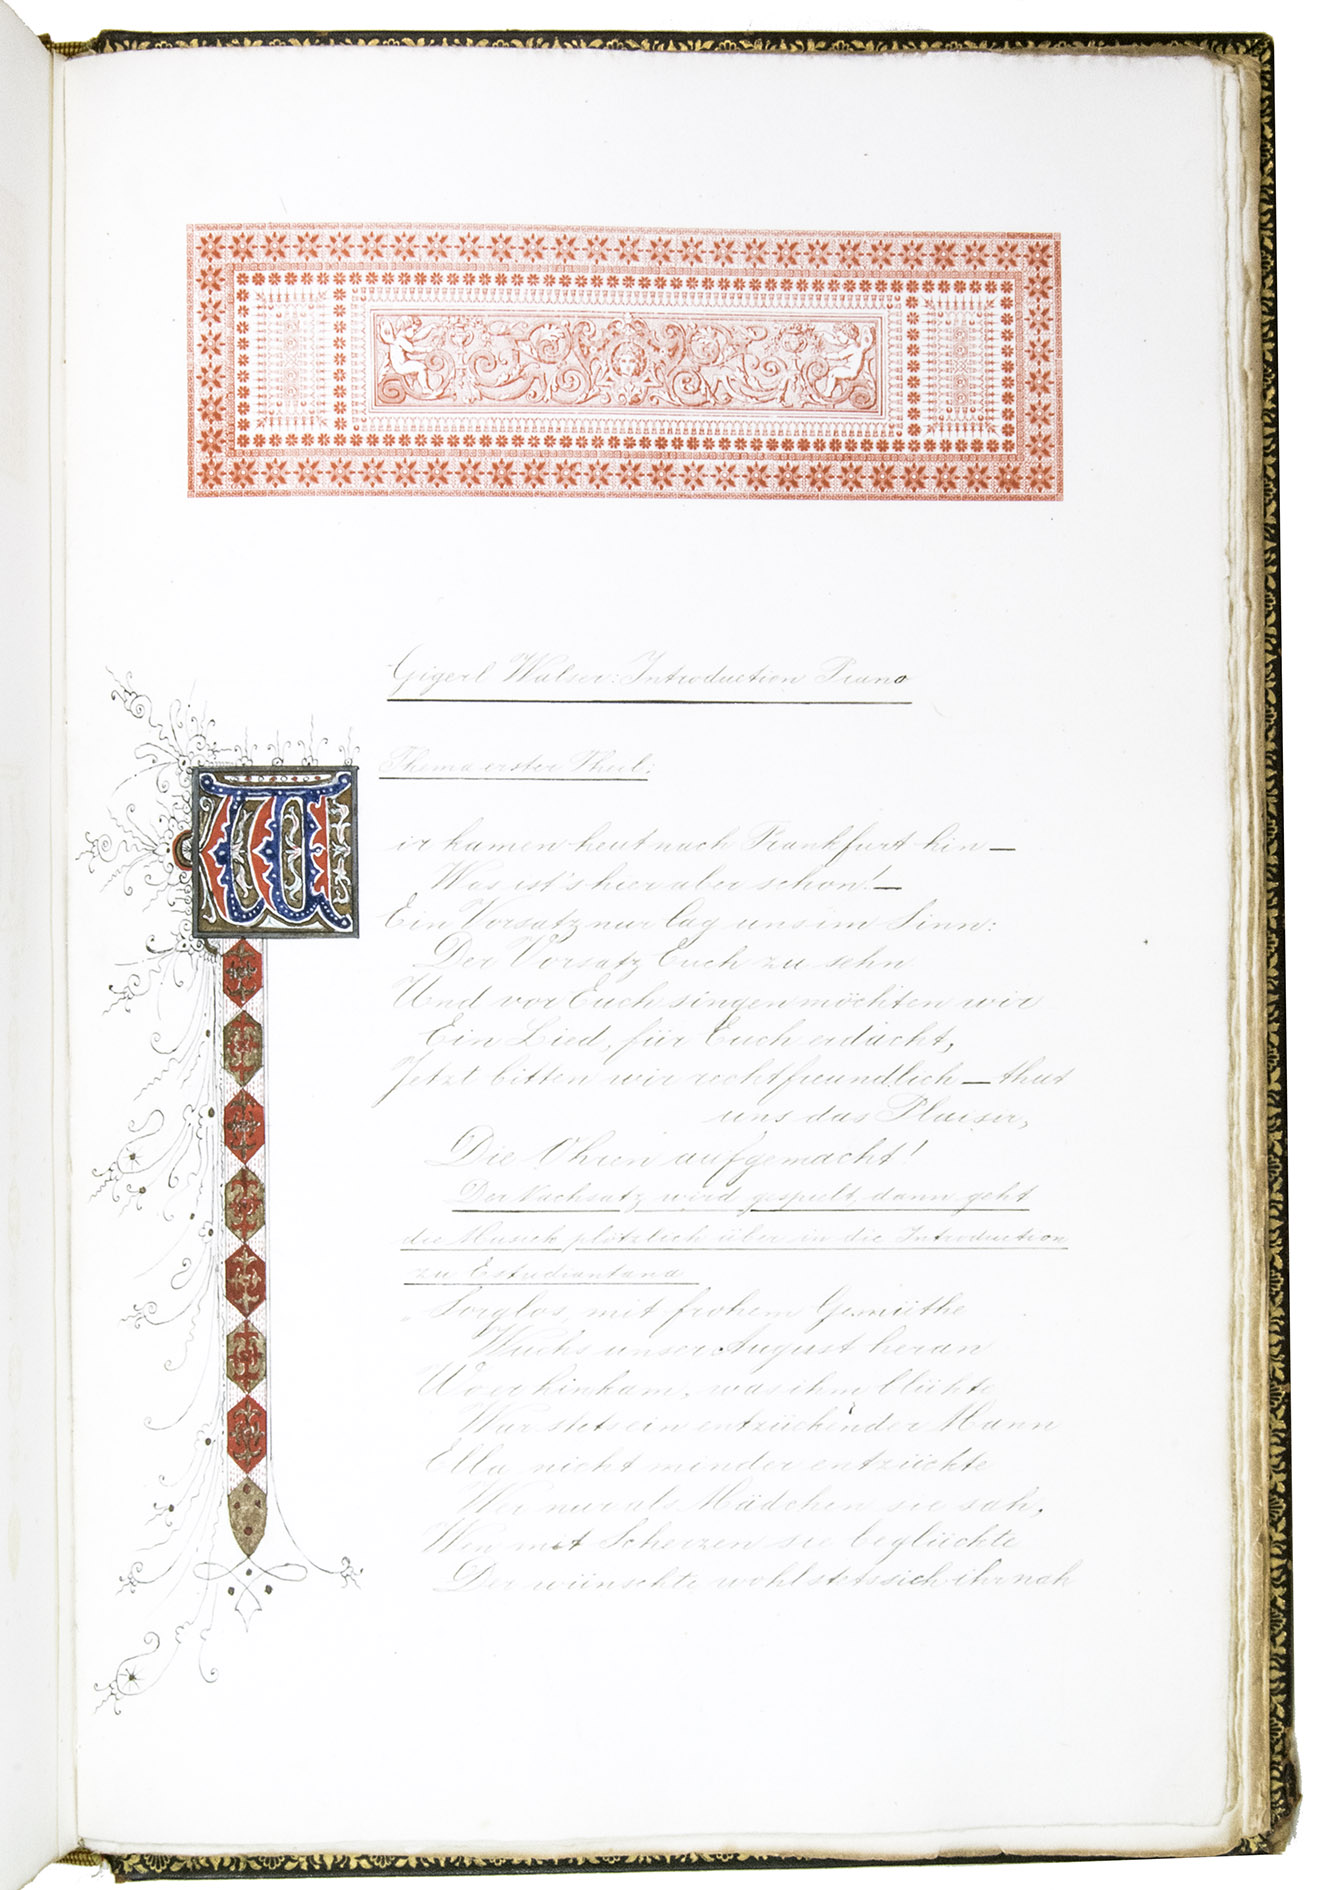 Gigerl Walser: Introduction Piano
Thema erster Theil:
Wir kamen heut nach Frankfurt hin —
Was ist's hier aber schön! —
Ein Vorsatz nur lag uns im Sinn:
Der Vorsatz Euch zu sehn
Und vor Euch singen möchten wir
Ein Lied, für Euch erdacht,
Jetzt bitten wir recht freundlich — thut
uns das Plaisir,
Die Ohren aufgemacht!
Der Nachsatz wird gespielt, dann geht
die Musick plötzlich über in die Introduction
zu Estudiantana
„Sorglos, mit frohem Gemüthe
Wuchs unser August heran
Wo er hinkam, was ihm blühte
War stets ein entzückender Mann
Ella nicht minder entzückte
Wer nur als Mädchen sie sah,
Wen mit Scherzen sie beglückte
Der wünschte wohl stets sich ihr nah